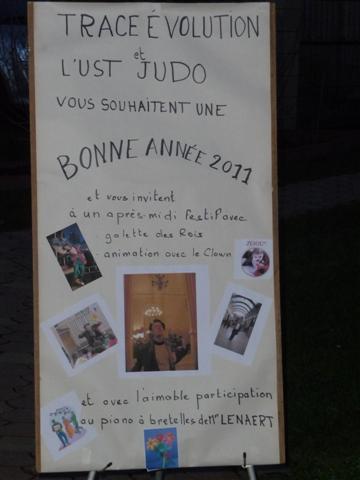 TRACE ÉVOLUTION
et
L'UST JUDO
VOUS SOUHAITENT UNE
BONNE ANNÉE 2011
et vous invitent
à un après-midi festif avec
galette des Rois
animation avec le Clown
et avec l'aimable participation
au piano à bretelles de Mr LENAERT